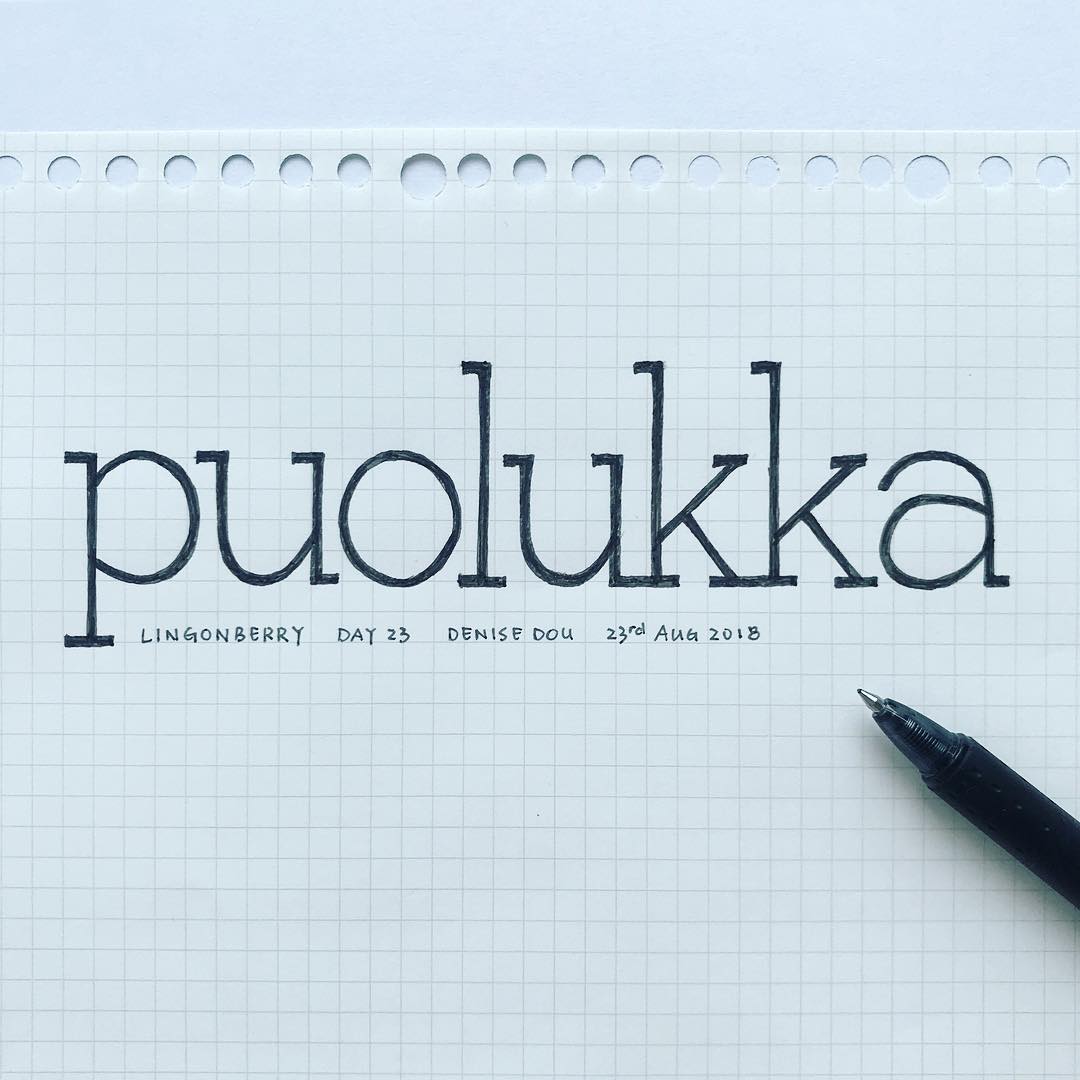 puolukka
LINGONBERRY DAY 23 DENISE DOU 23rd AUG 2018